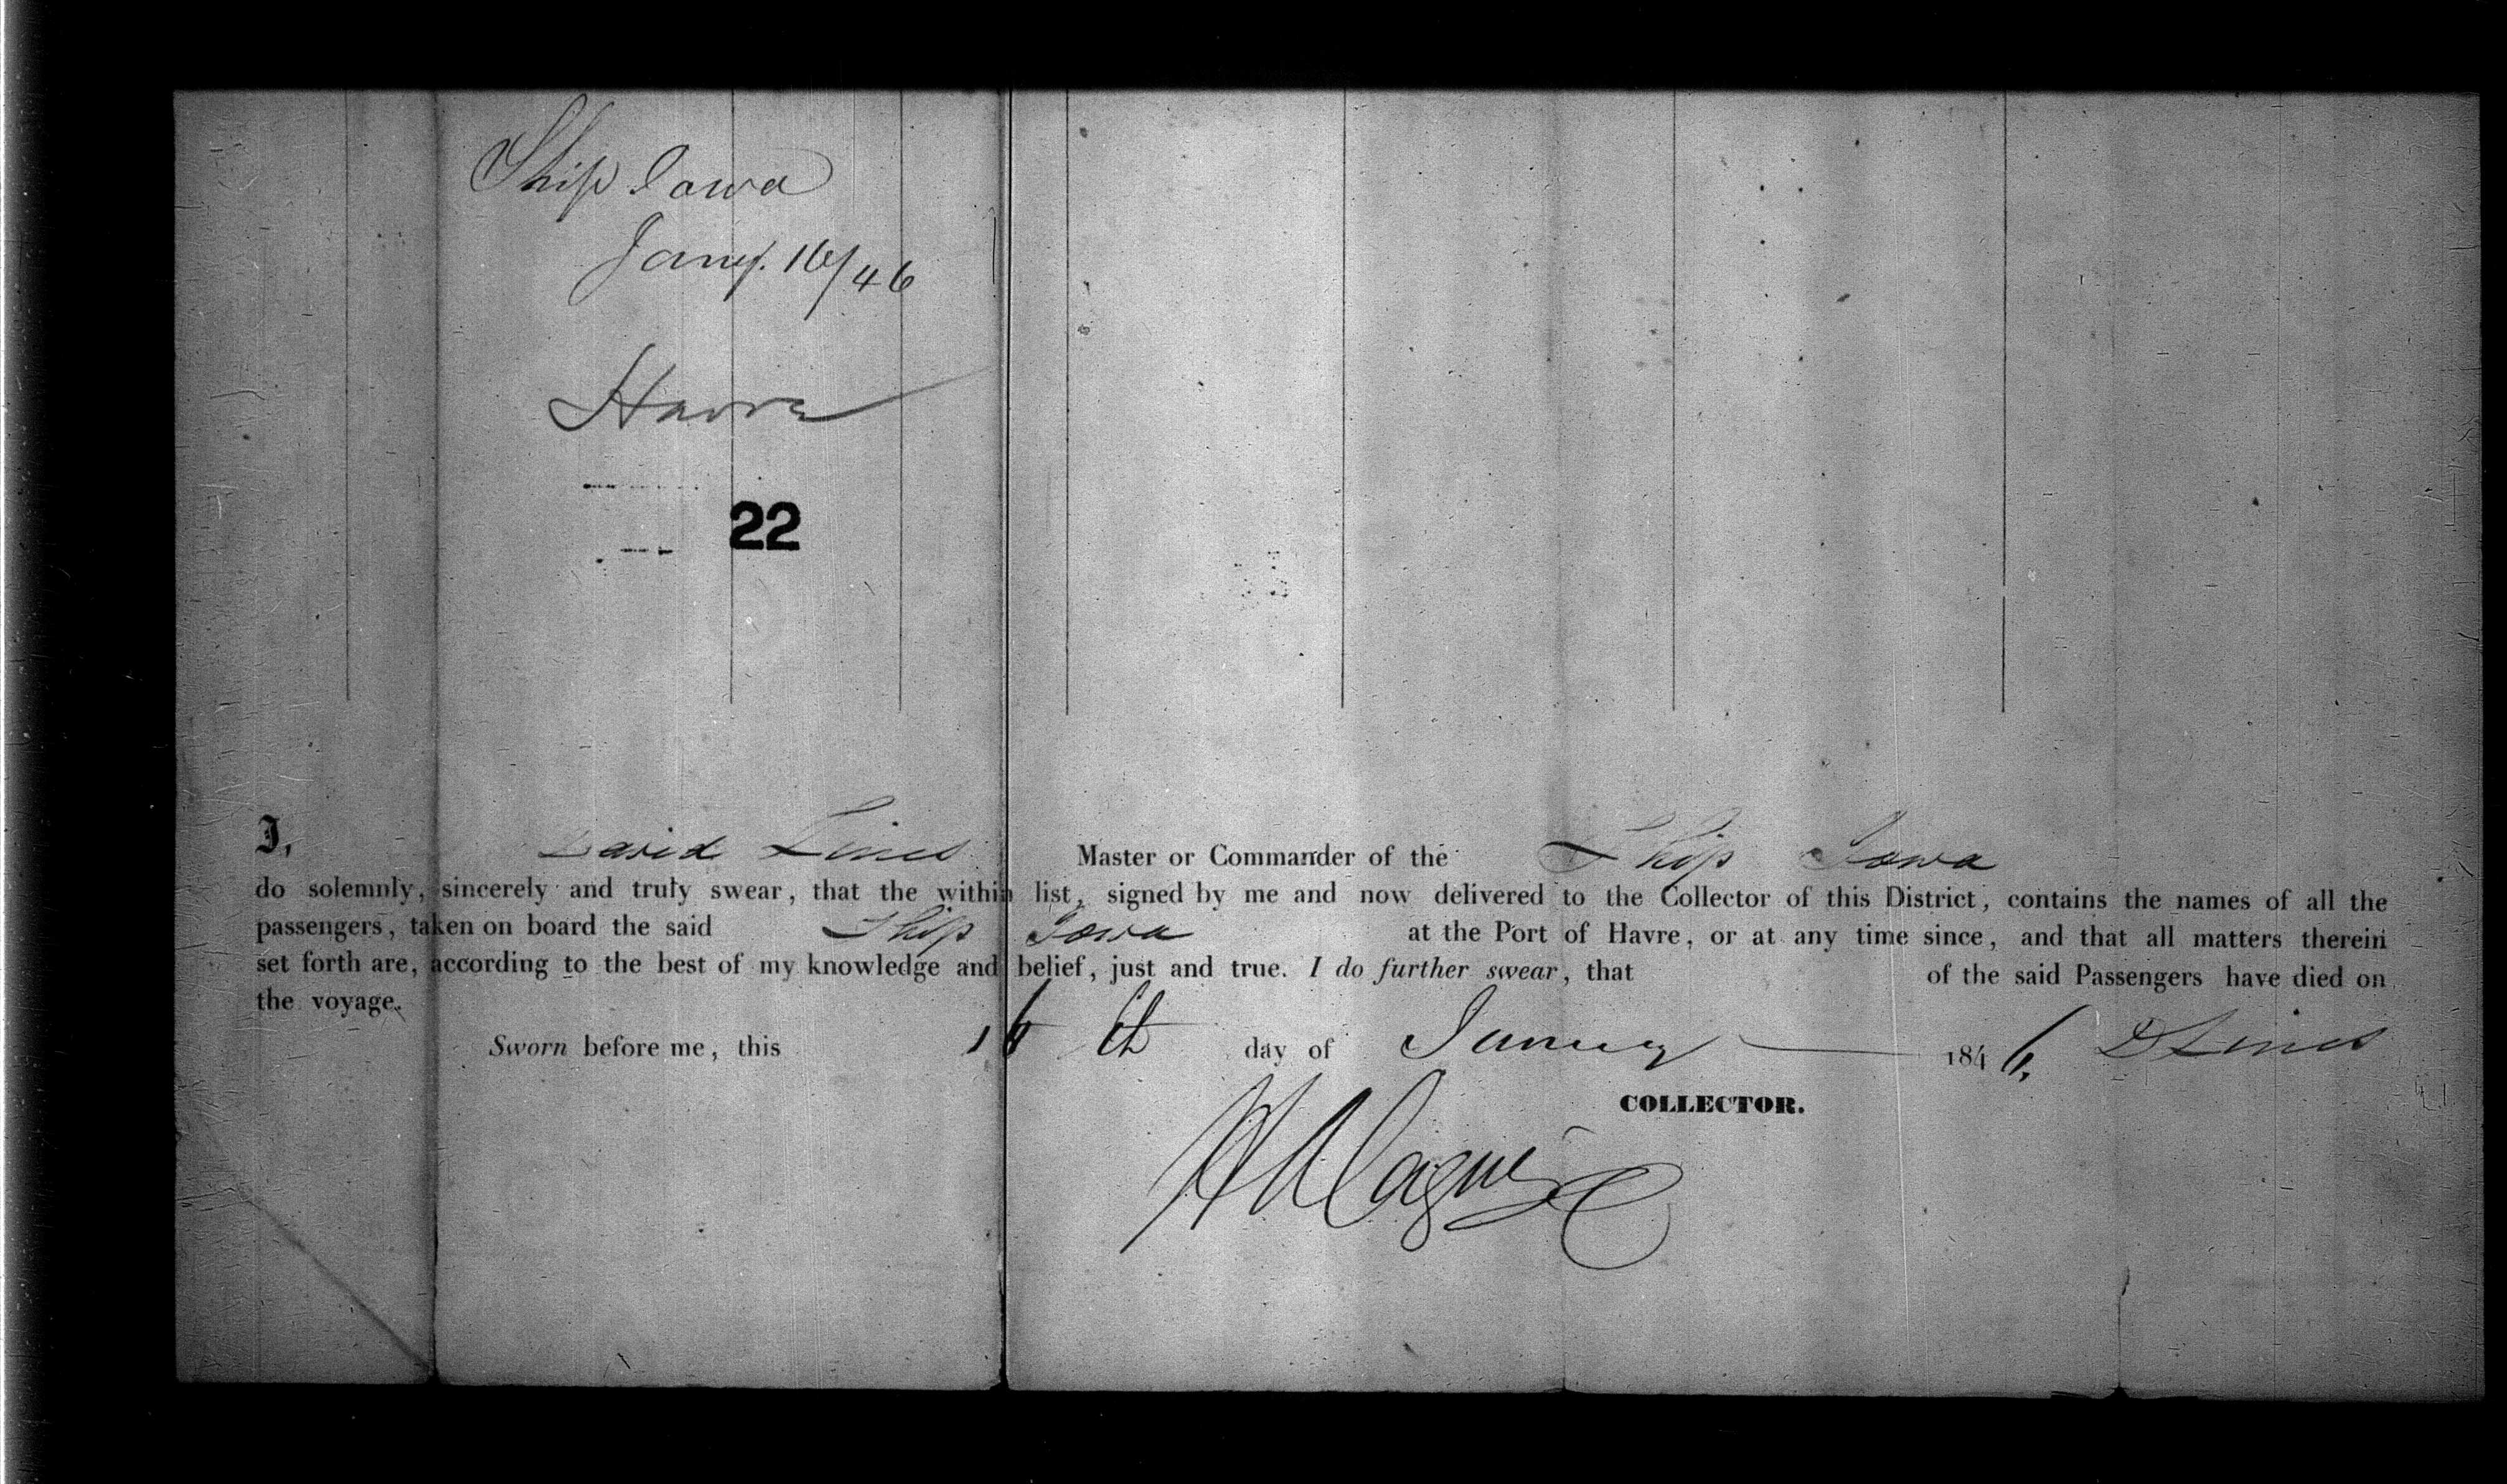 Ship Iowa
Jany. 16/46
Havre
22
I, David Lines Master or Commander of the Ship Iowa
do solemnly, sincerely and truly swear, that the within list, signed by me and now delivered to the Collector of this District, contains the names of all the
passengers, taken on board the said Ship Iowa at the Port of Havre, or at any time since, and that all matters therein
set forth are, according to the best of my knowledge and belief, just and true. I do further swear, that of the said Passengers have died on
the voyage.
Sworn before me, this 16 th day of January 1846. D Lines
COLLECTOR.